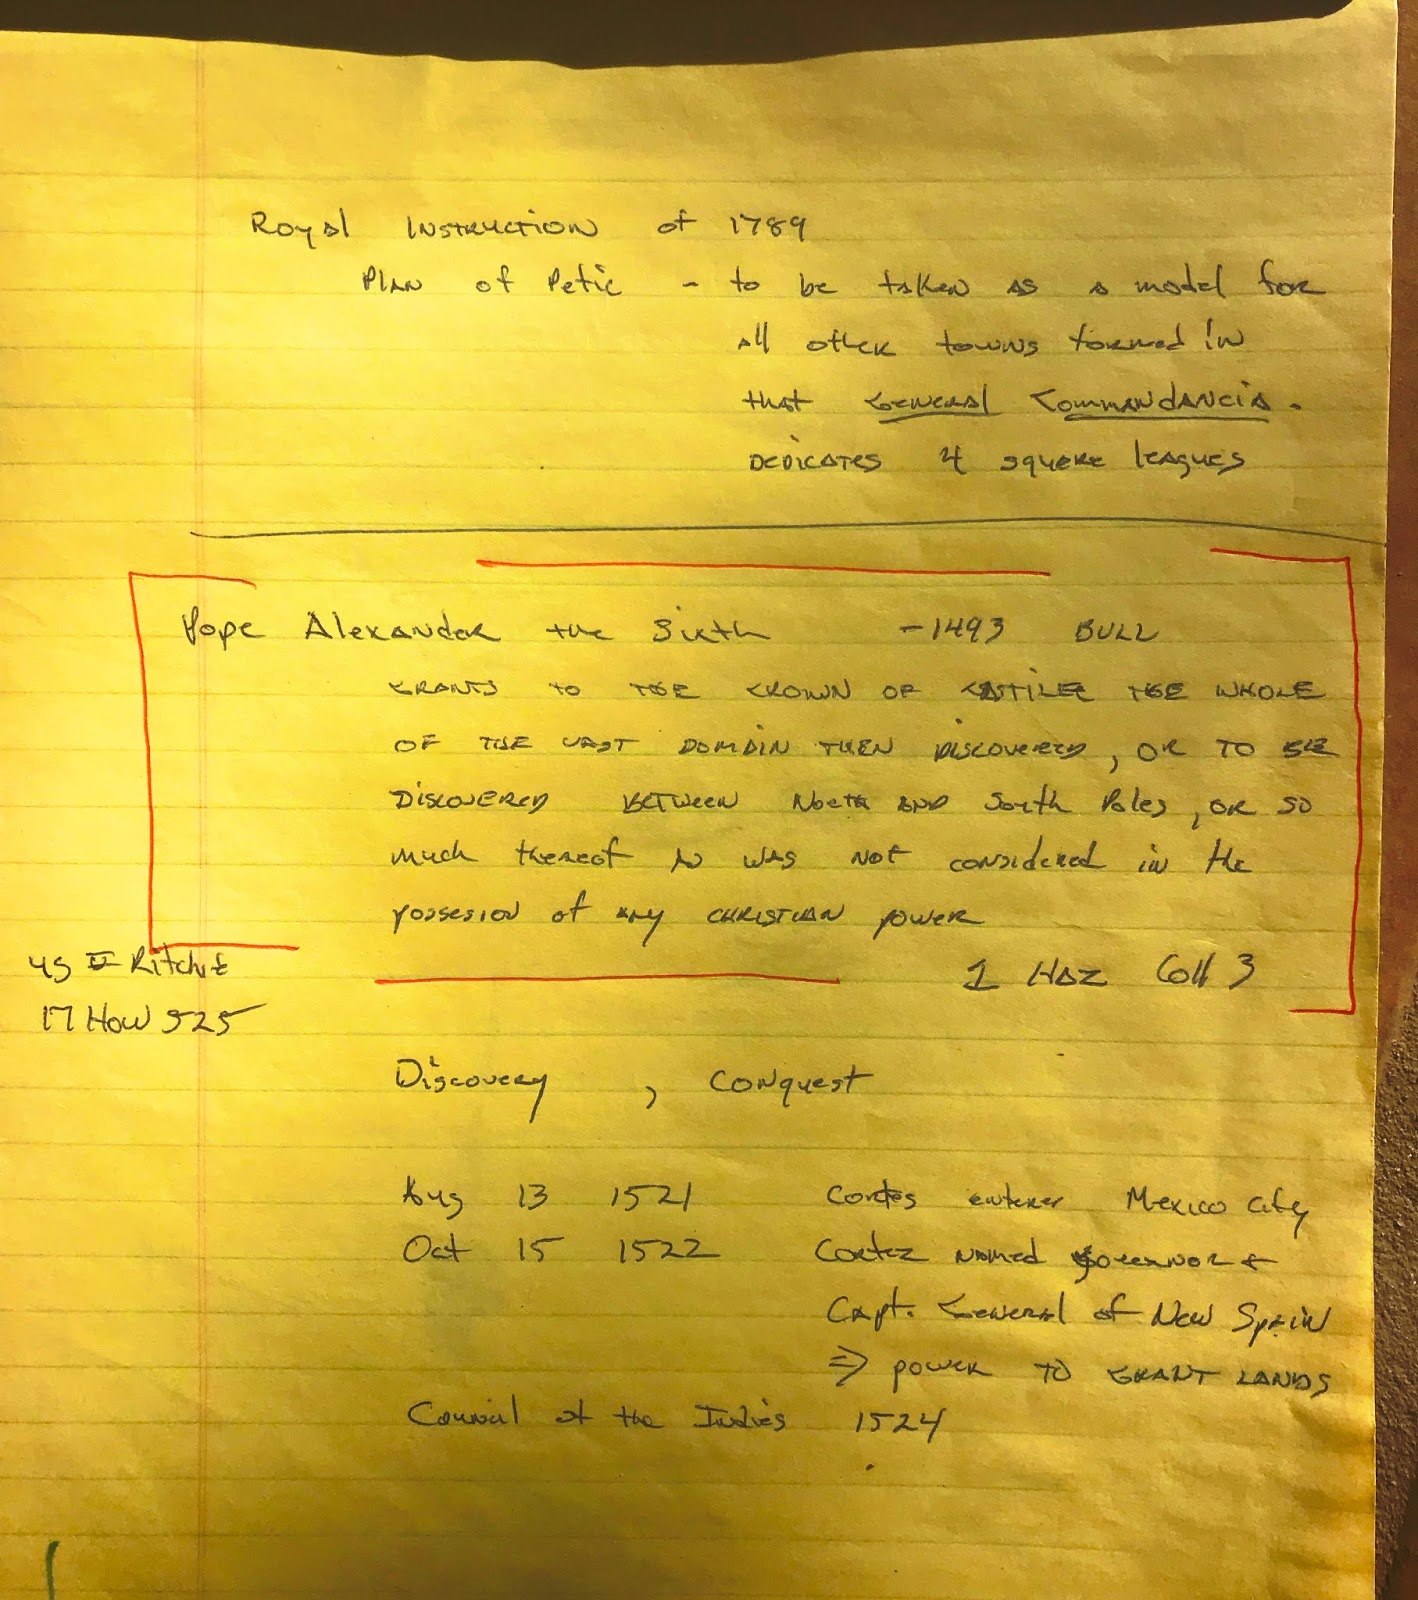 Royal Instruction of 1789
Plan of Petic - to be taken as a model for
all other towns formed in
that General Commandancia.
Dedicates 4 square leagues
Pope Alexander the Sixth - 1493 BULL
GRANTS TO THE CROWN OF CASTILE THE WHOLE
OF THE VAST DOMAIN THEN DISCOVERED, OR TO BE
DISCOVERED BETWEEN North AND South Poles, OR SO
much thereof as was not considered in the
possesion of any CHRISTIAN power
US v Ritchie
1 Haz Coll 3
17 How 525
Discovery , Conquest
Aug 13 1521 Cortes enterer Mexico City
Oct 15 1522 Cortez named Governor +
Capt. General of New Spain
⇒ power TO GRANT LANDS
Council of the Indies 1524